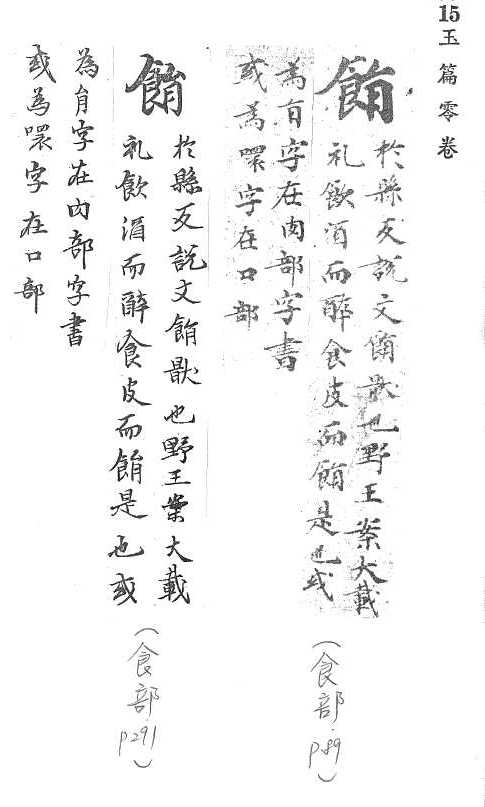 15 玉篇零卷
䬼
於縣反說文䬼猒也野王案大載
礼飲酒而醉食皮而䬼是也或
為肙字在肉部字書
或為噮字在口部
(食部 p.89)
䬼
於縣反說文䬼猒也野王案大載
礼飲酒而醉食皮而䬼是也或
為肙字在肉部字書
或為噮字在口部
(食部 p291)